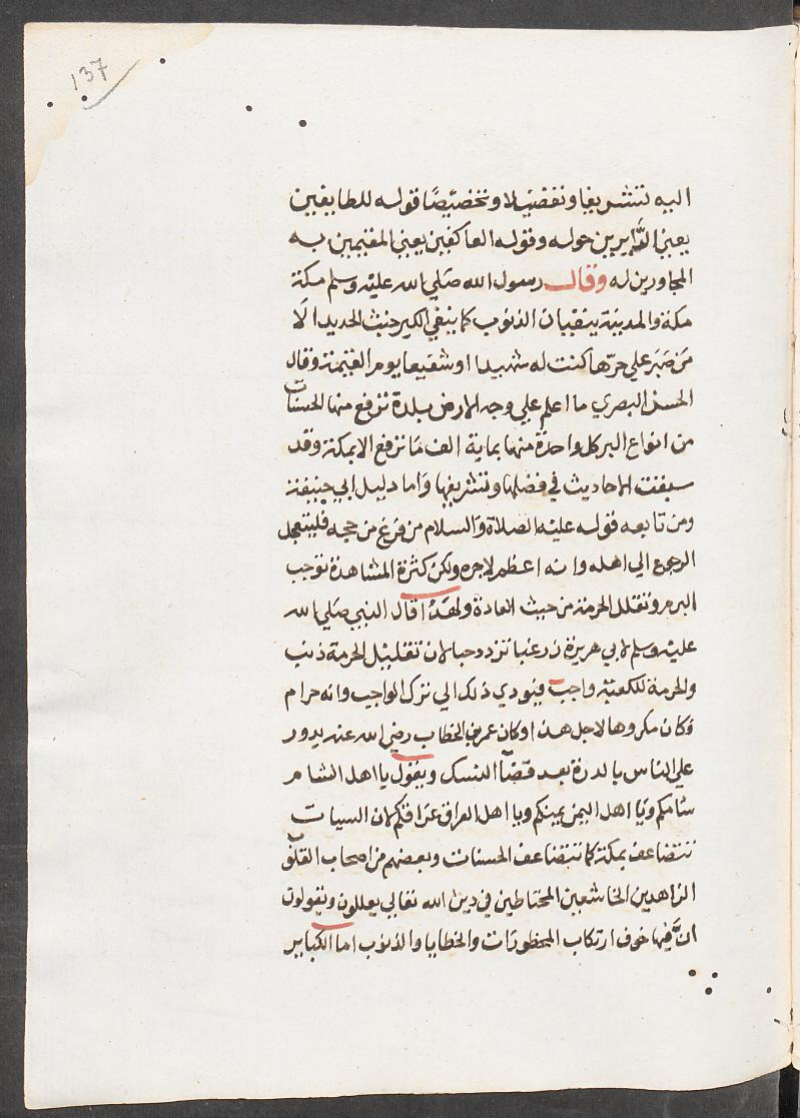 137
اليه تشريفا وتفضيلا وتخصيصًا قوله للطايفين
يعني الدايرين حوله وقوله العاكفين يعني المقيمين به
المجاورين له وقال رسول الله صلي الله عليه وسلم مكة
مكة والمدينة ينقيان الذنوب كما ينقي الكير خبث الحديد الا
من صبر علي حرها كنت له شهيدا او شفيعا يوم القيمة وقال
الحسن البصري ما اعلم علي وجه الارض بلدة ترفع منها الحسنات
من انواع البر كل واحدة منها بماية الف ما ترفع الا بمكة وقد
سبقت الاحاديث في فضلها وتشريفها واما دليل ابي حنيفة
ومن تابعه قوله عليه الصلاة والسلام من فرغ من حجه فليتعجل
الرجوع الي اهله وانه اعظم لاجره ولكن كثرة المشاهدة توجب
البرم وتقلل الحرمة من حيث العادة ولهذا قال النبي صلي الله
عليه وسلم لابي هريرة زر غبا تزدد حبا لان تقليل الحرمة ذنب
والحرمة للكعبة واجب فيودي ذلك الي ترك الواجب وانه حرام
وكان مكروها لاجل هذا وكان عمر بن الخطاب رضي الله عنه يدور
علي الناس بالدرة بعد قضآ النسك ويقول يا اهل الشام
شامكم ويا اهل اليمن يمنكم ويا اهل العراق عراقكم لان السيات
تتضاعف بمكة كما تتضاعف الحسنات وبعضهم من اصحاب القلوب
الزاهدين الخاشعين المحتاطين في دين الله تعالي يعللون ويقولون
ان فيها خوف ارتكاب المحظورات والخطايا والذنوب اما الكباير